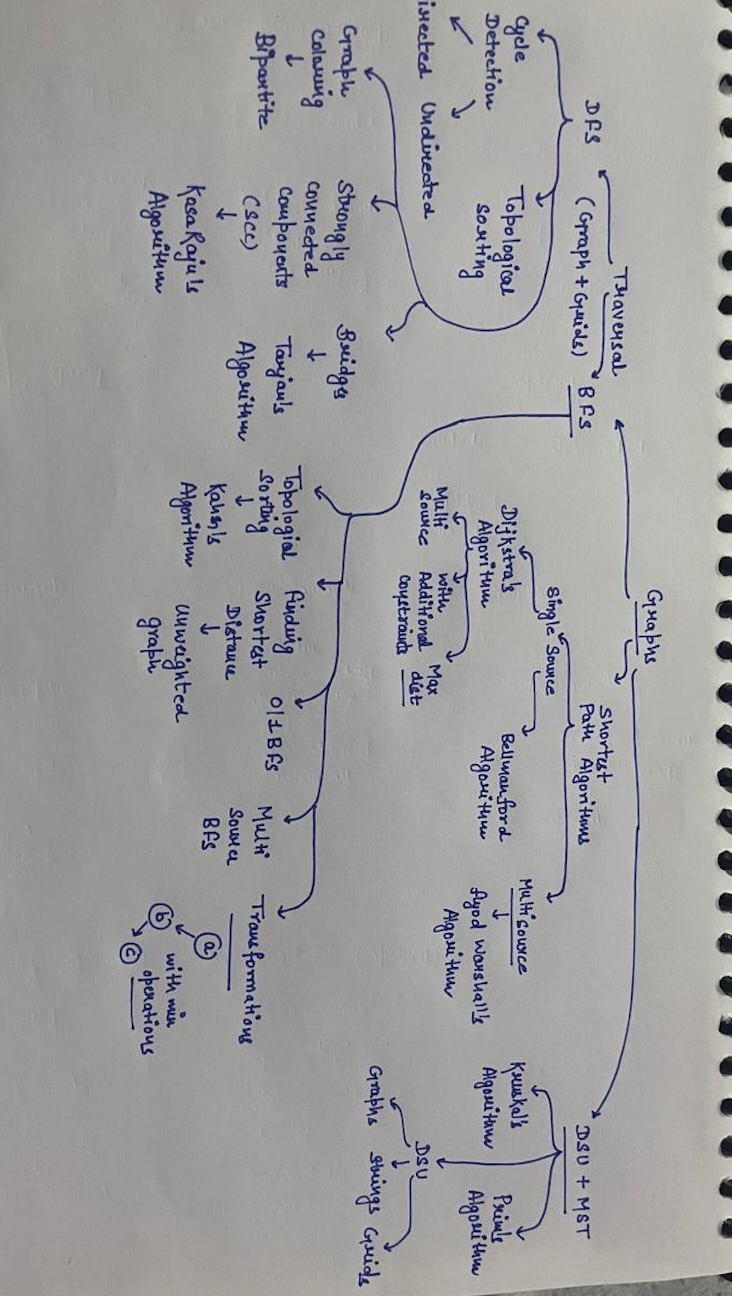 Graphs
Traversal
(Graph + Grids)
DFS
BFS
Cycle
Detection
Undirected
Topological
sorting
Graph
Coloring
Bipartite
Strongly
connected
components
(SCC)
KosaRaju's
Algorithm
Bridges
Tarjan's
Algorithm
Topological
Sorting
Kahn's
Algorithm
finding
Shortest
Distance
Unweighted
graph
0/1 BFS
Multi
Source
BFS
Transformations
a
b
c
with min
operations
Shortest
Path Algorithms
Single Source
Dijkstra's
Algorithm
Multi
source
with
Additional
constraints
Max
dist
Bellmanford
Algorithm
Multisource
flyod Warshall's
Algorithm
DSU + MST
Kruskal's
Algorithm
Prim's
Algorithm
DSU
Graphs
Strings
Grids